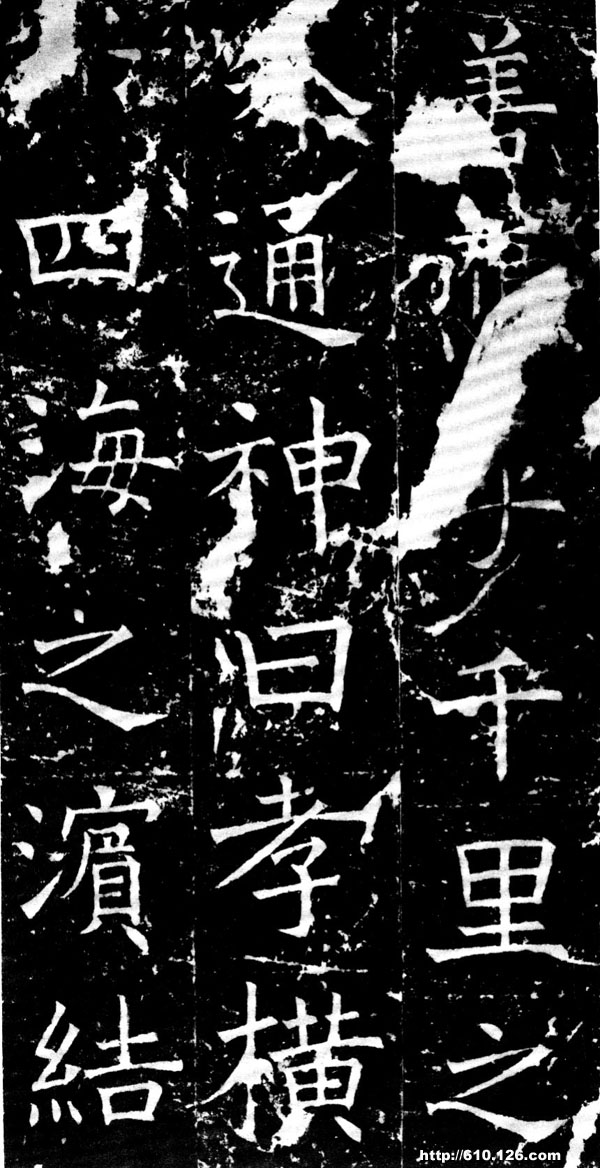 善千里之
通神曰孝橫
四海之濱結
http://610.126.com